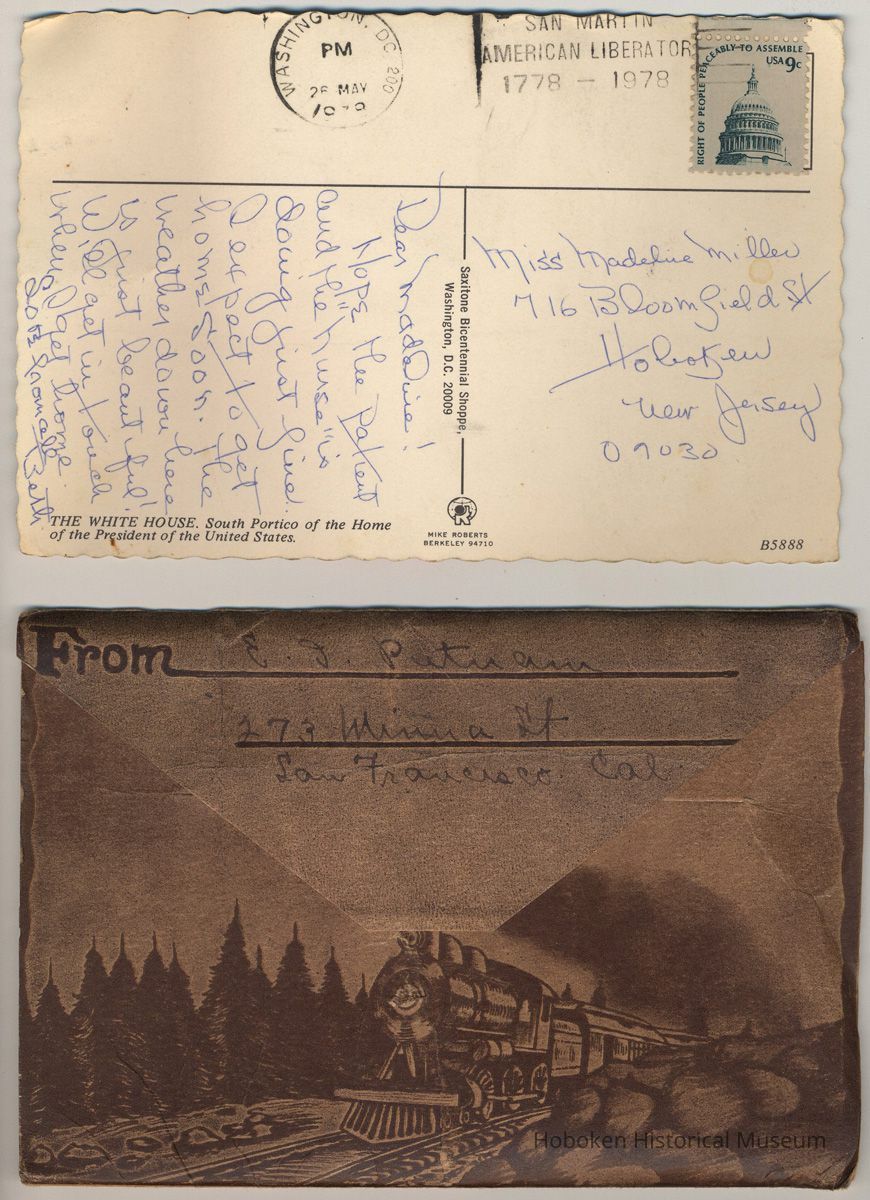 WASHINGTON, DC 200
PM
26 MAY
SAN MARTIN
AMERICAN LIBERATOR
1778 – 1978
RIGHT OF PEOPLE PEACEABLY TO ASSEMBLE
USA 9c
Dear Madeline!
Hope the patient
and the "nurse" is
doing just fine.
I expect to get
home soon. The
weather down here
is just beautiful!
Will get in touch
when I get home.
Beth
Saxitone Bicentennial Shoppe,
Washington, D.C. 20009
Miss Madeline Miller
716 Bloomfield St
Hoboken
New Jersey
07030
THE WHITE HOUSE. South Portico of the Home
of the President of the United States.
MIKE ROBERTS
BERKELEY 94710
B5888
From
Putnam
273 Minna St
San Francisco Cal
Hoboken Historical Museum